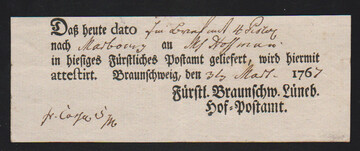 Daß heute dato
nach Marbourg an Hoffman
in hiesiges Fürstliches Postamt geliefert, wird hiermit
attestirt. Braunschweig, den 3 Mart. 1767
Fürstl. Braunschw. Lüneb.
Hof-Postamt.